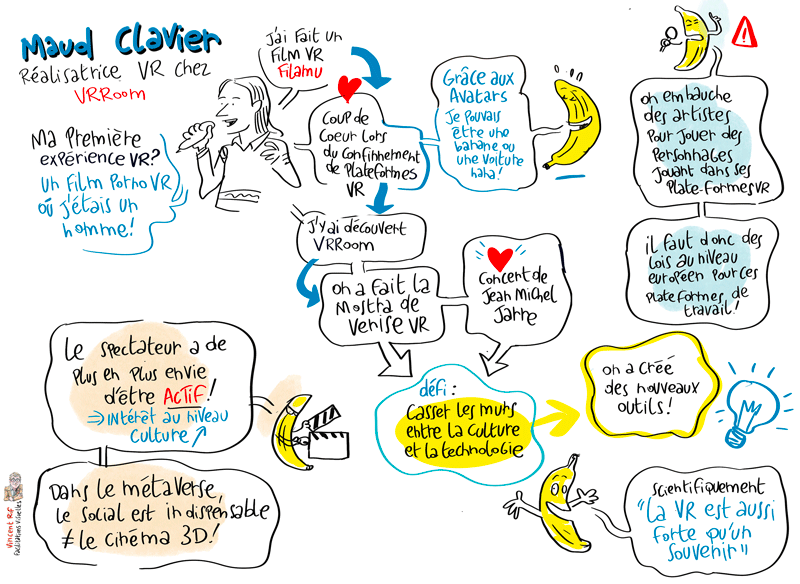 Maud Clavier
Réalisatrice VR chez
VRRoom
Ma Première
expérience VR?
un Film Porno VR
où j'étais un
homme!
J'ai fait un
Film VR
Filamu
Coup de
Coeur lors
du Confinnement
de Plateformes
VR
Grâce aux
Avatars
Je pouvais
être une
banane ou
une voiture
haha!
J'y ai découvert
VRRoom
on a fait la
Mostra de
Venise VR
Concert de
Jean Michel
Jarre
on embauche
des artistes
Pour jouer des
Personnages
Jouant dans ses
Plate-FormesVR
il faut donc des
Lois au niveau
européen pour ces
plateformes de
travail!
Le spectateur a de
Plus en Plus envie
d'être ACTiF!
⇒ intérêt au niveau
Culture ↗
Dans le métaverse,
Le Social est indispensable
≠ le cinéma 3D!
défi:
Casser les murs
entre la Culture
et la technologie
on a créé
des nouveaux
outils!
Scientifiquement
"La VR est aussi
Forte qu'un
Souvenir"
Vincent Rif
Facilitations Visuelles